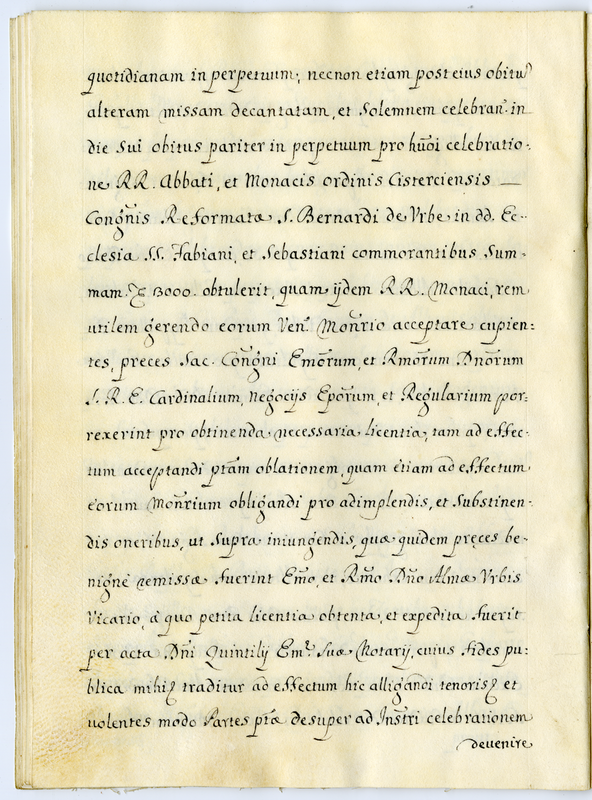 quotidianam in perpetuum, necnon etiam post eius obitũ
alteram missam decantatam, et Solemnem celebran. in
die Sui obitus pariter in perpetuum pro hũoi celebratio:
ne RR. Abbati, et Monacis ordinis Cisterciensis —
Congñis Reformatæ S. Bernardi de Vrbe in dd. Ec:
clesia SS. Fabiani, et Sebastiani commorantibus Sum:
mam 3000. obtulerit, quam ijdem RR. Monaci, rem
utilem gerendo eorum Ven. Moñrio acceptare cupien:
tes, preces Sac. Congñi Emõrum, et Rmõrum Dnõrum
S. R. E. Cardinalium, Negocijs Epõrum, et Regularium por:
rexerint pro obtinenda necessaria licentia, tam ad effec:
tum acceptandi ptãm oblationem, quam etiam ad effectum
eorum Moñrium obligandi pro adimplendis, et Substinen:
dis oneribus, ut Supra iniungendis, quæ quidem pręces be:
nignè remissæ fuerint Em̃o, et Rm̃o Dñо Almæ Vrbis
Vicario, à quo petita licentia obtenta, et expedita fuerit
per acta Dñi Quintilij Em. Suæ Notarij, cuius fides pu:
blica mihi traditur ad effectum hic alligandi tenoris et
uolentes modo Partes ptæ desuper ad Instri celebrationem
deuenire